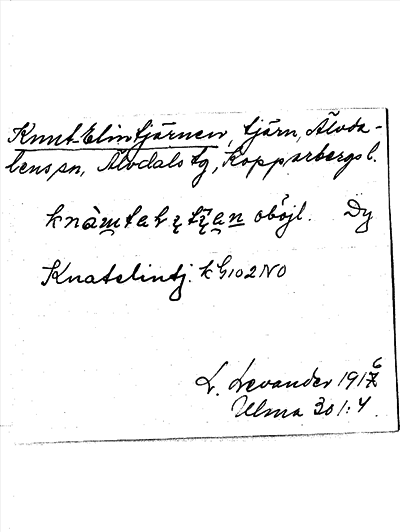 Knut-Elin tjärnen, tjärn, Älvda-
lens sn, Älvdals tg, Kopparbergs l.
oböjl. Dy
Knatelintj. k G102NO
L. Levander 1916
Ulma 301:4